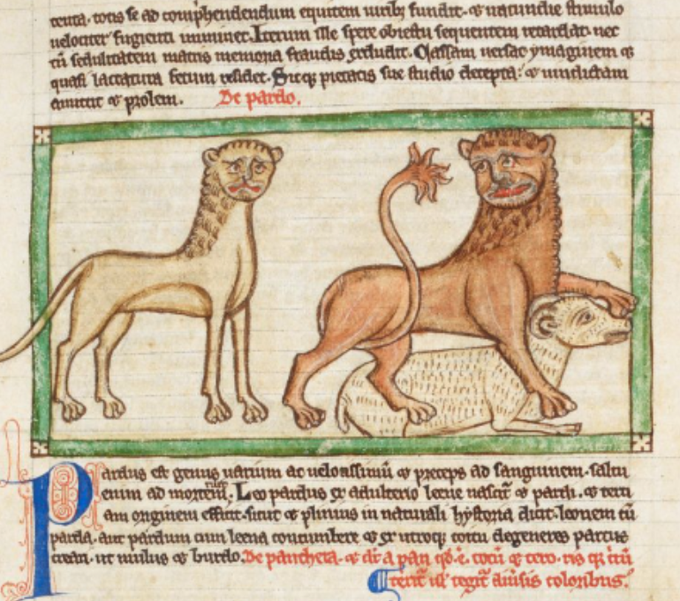 tenta. totis se ad comprehendendum equitem uirib; fundit. ⁊ uanitudine stimulo
uelociter fugienti imminet. Iterum ille spere obiectu sequentem retardat. nec
tñ sedulitatem matris memoria fraudis excludit. Cassam uersat ymaginem ⁊
quasi lactatura fetum residet. Sicq; pietatis sue studio decepta: ⁊ uindictam
amittit ⁊ prolem. De pardo.
Pardus est genus uarium ac uelocissimũ ⁊ preceps ad sanguinem. saltu
enim ad mortem ruit. Leo pardus ex adulterio leene nascit̃ ⁊ pardi. ⁊ terti
am originem efficit. sicut ⁊ plinius in naturali hystoria dicit. leonem cũ
parda. aut pardum cum leena concumbere ⁊ ex utroq; coitu degeneres partus
creari. ut mulus ⁊ burdo. De panthera. ⁊ dr̃ a pan qđ ē. totũ ⁊
coloribus.